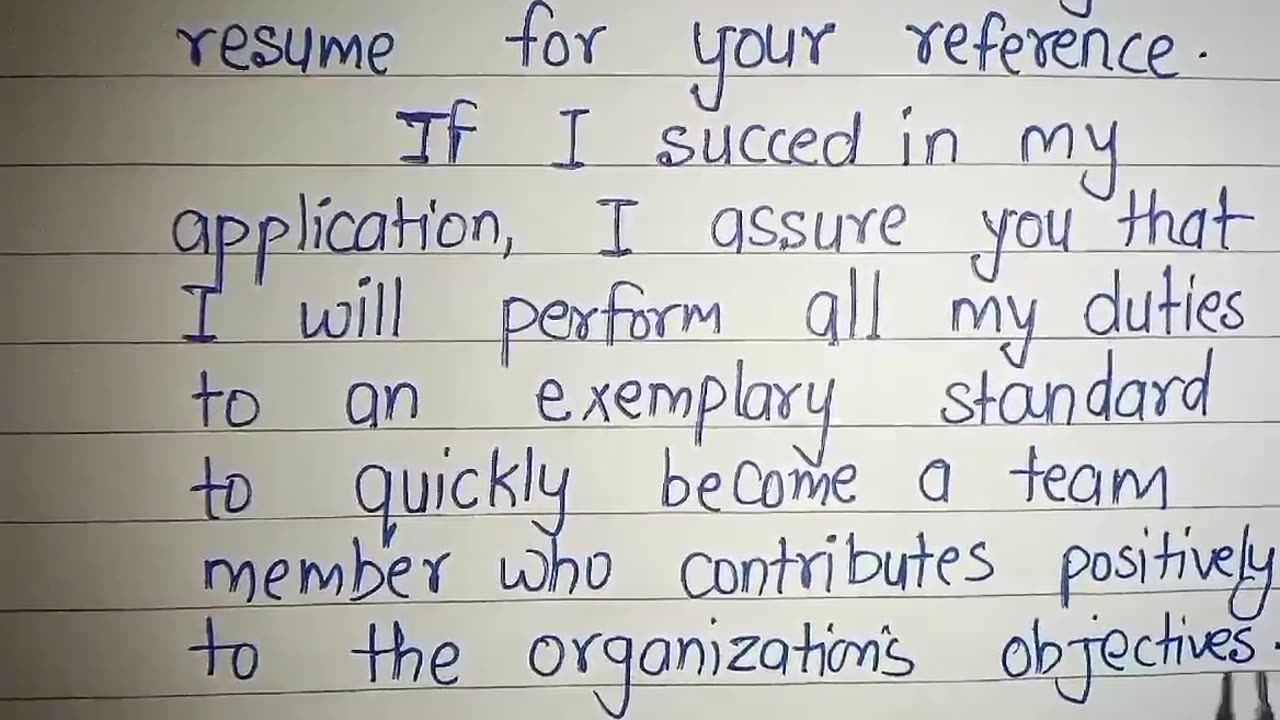 resume for your reference.
If I succed in my
application, I assure you that
I will perform all my duties
to an exemplary standard
to quickly become a team
member who contributes positively
to the organization's objectives.